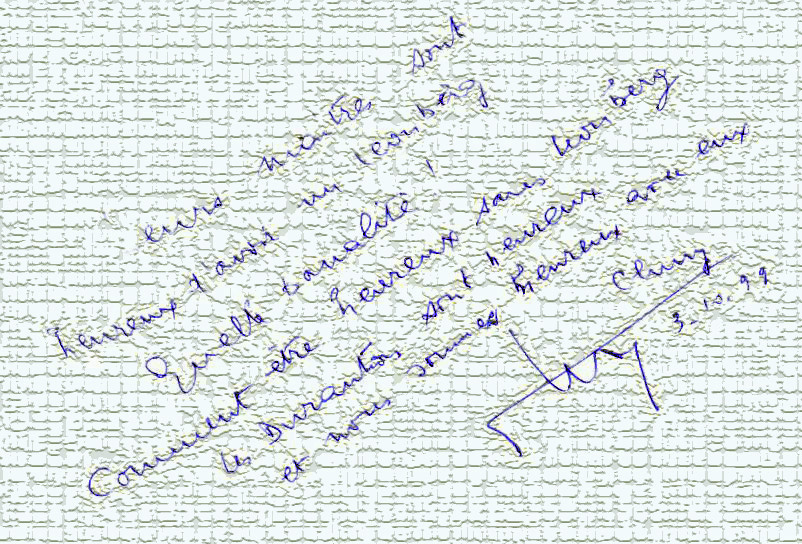 eurs maîtres sont
heureux d'avoir un leonberg
Quelle banalité !
Comment être heureux sans leonberg
les Durantons sont heureux avec eux
et nous sommes heureux
Cluny
3.10.99